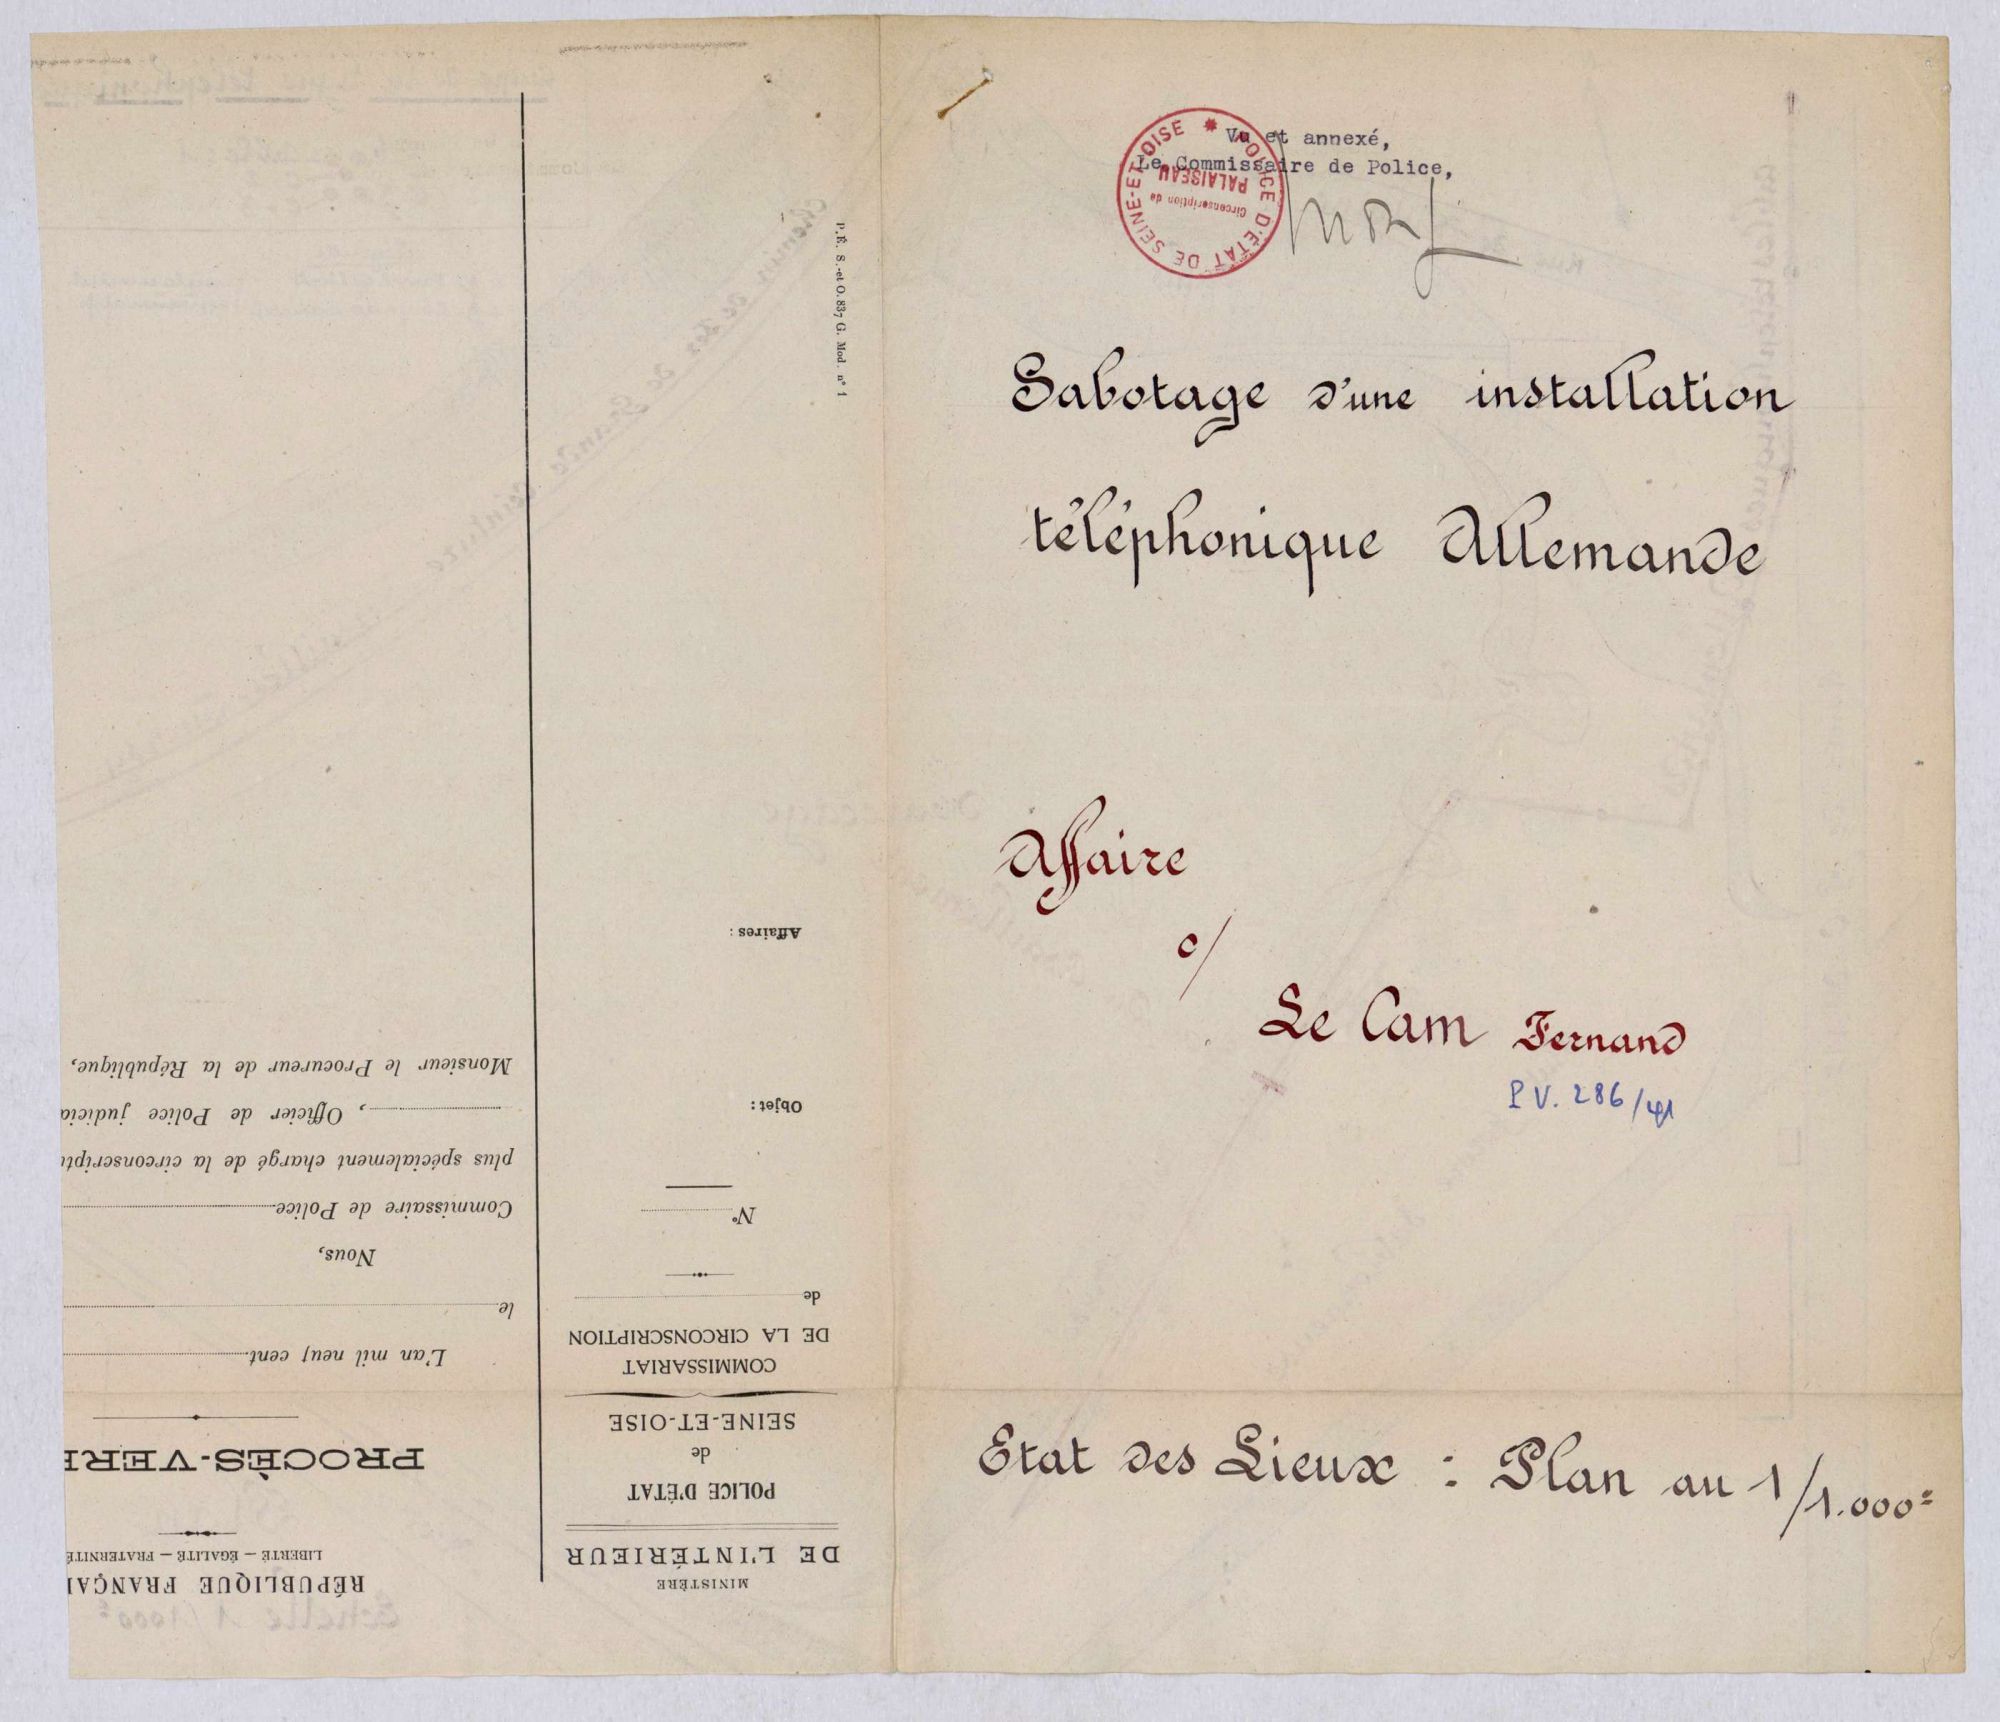 Vu et annexé,
Le Commissaire de Police,
POLICE D'ÉTAT DE SEINE-ET-OISE
Circonscription de
PALAISEAU
Sabotage d'une installation
téléphonique Allemande
Affaire
c/
Le Cam Fernand
P.V. 286/41
Etat des Lieux : Plan au 1/1.000e
MINISTÈRE
DE L'INTÉRIEUR
POLICE D'ÉTAT
de
SEINE-ET-OISE
COMMISSARIAT
DE LA CIRCONSCRIPTION
de
N°
Objet :
Affaires :
P. É. S.-et-O. 837 G. Mod. n° 1
RÉPUBLIQUE FRANÇAI
LIBERTÉ — ÉGALITÉ — FRATERNITÉ
PROCÈS-VERB
L'an mil neuf cent
le
Nous,
Commissaire de Police
plus spécialement chargé de la circonscripti
, Officier de Police judicia
Monsieur le Procureur de la République,
Echelle 1/1000e